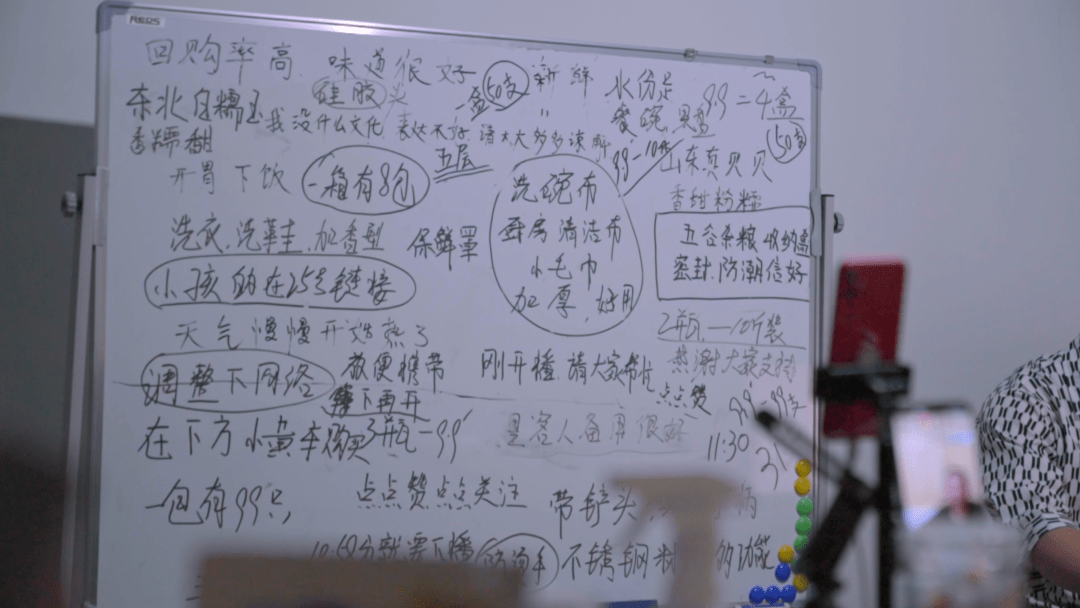 回购率高 味道很好 新鲜 水份足
硅胶头 一盒50支 9.9=4盒
东北白糯玉 爱碗 50支
香糯甜 我没什么文化 表达不好 请大大多多谅解
9.9-10件 山东真贝贝
五层
开胃下饭 一箱有8包 洗碗布 香甜粉糯
厨房清洁布 五谷杂粮 收纳盒
洗衣.洗鞋 加香型 保鲜罩 小毛巾 密封.防潮倍好
小孩的在25号链接 加厚.好用
天气慢慢开始热了 2瓶—10斤装
调整下网络 方便携带 刚开播.请大家帮忙 感谢大家支持
整下再开 点点赞 9.9-99支
在下方小黄车购买 3瓶-9.9 是客人备用很好 11:30
一包有99只 点点赞点点关注 带铲头
分就要下播 防烫手 不锈钢 的功能